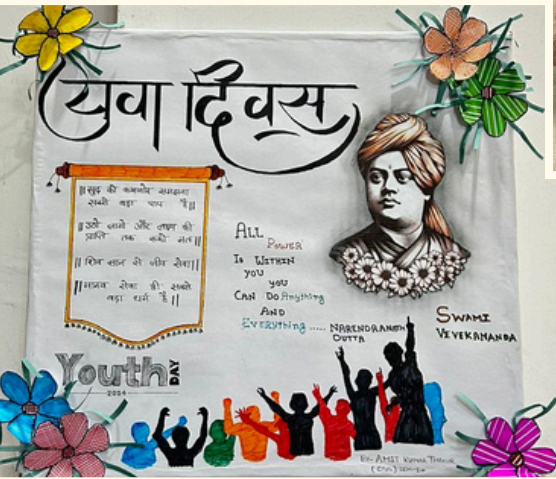 युवा दिवस
|| खुद को कमजोर समझना
सबसे बड़ा पाप है ||
|| उठो जागो और लक्ष्य की
प्राप्ति तक रूको मत ||
|| शिव ज्ञान से जीव सेवा ||
|| मानव सेवा ही सबसे
बड़ा धर्म है ||
ALL
POWER
IS WITHIN
YOU
YOU
CAN DO Anything
AND
EVERYthing .....
NARENDRANATH
DUTTA
SWAMI
VIVEKANANDA
Youth DAY
2024
AMIT KUMAR